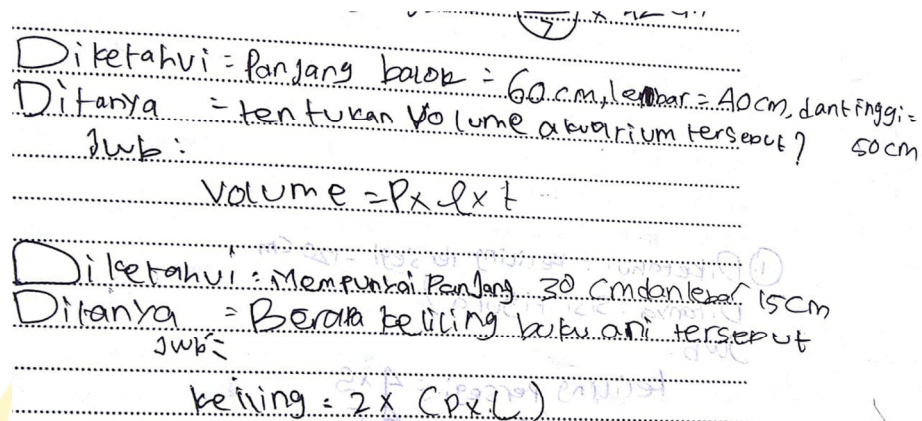 7 x 42
Diketahui = Panjang balok = 60 cm, lembar = 40 cm, dan tinggi =
50 cm
Ditanya = tentukan Volume akuarium tersebut?
Jwb:
Volume = P x l x t
Diketahui : Mempunyai Panjang 30 cm dan lebar 15 cm
Ditanya = Berapa keliling buku ani tersebut
Jwb =
keliling = 2 x (P x L)